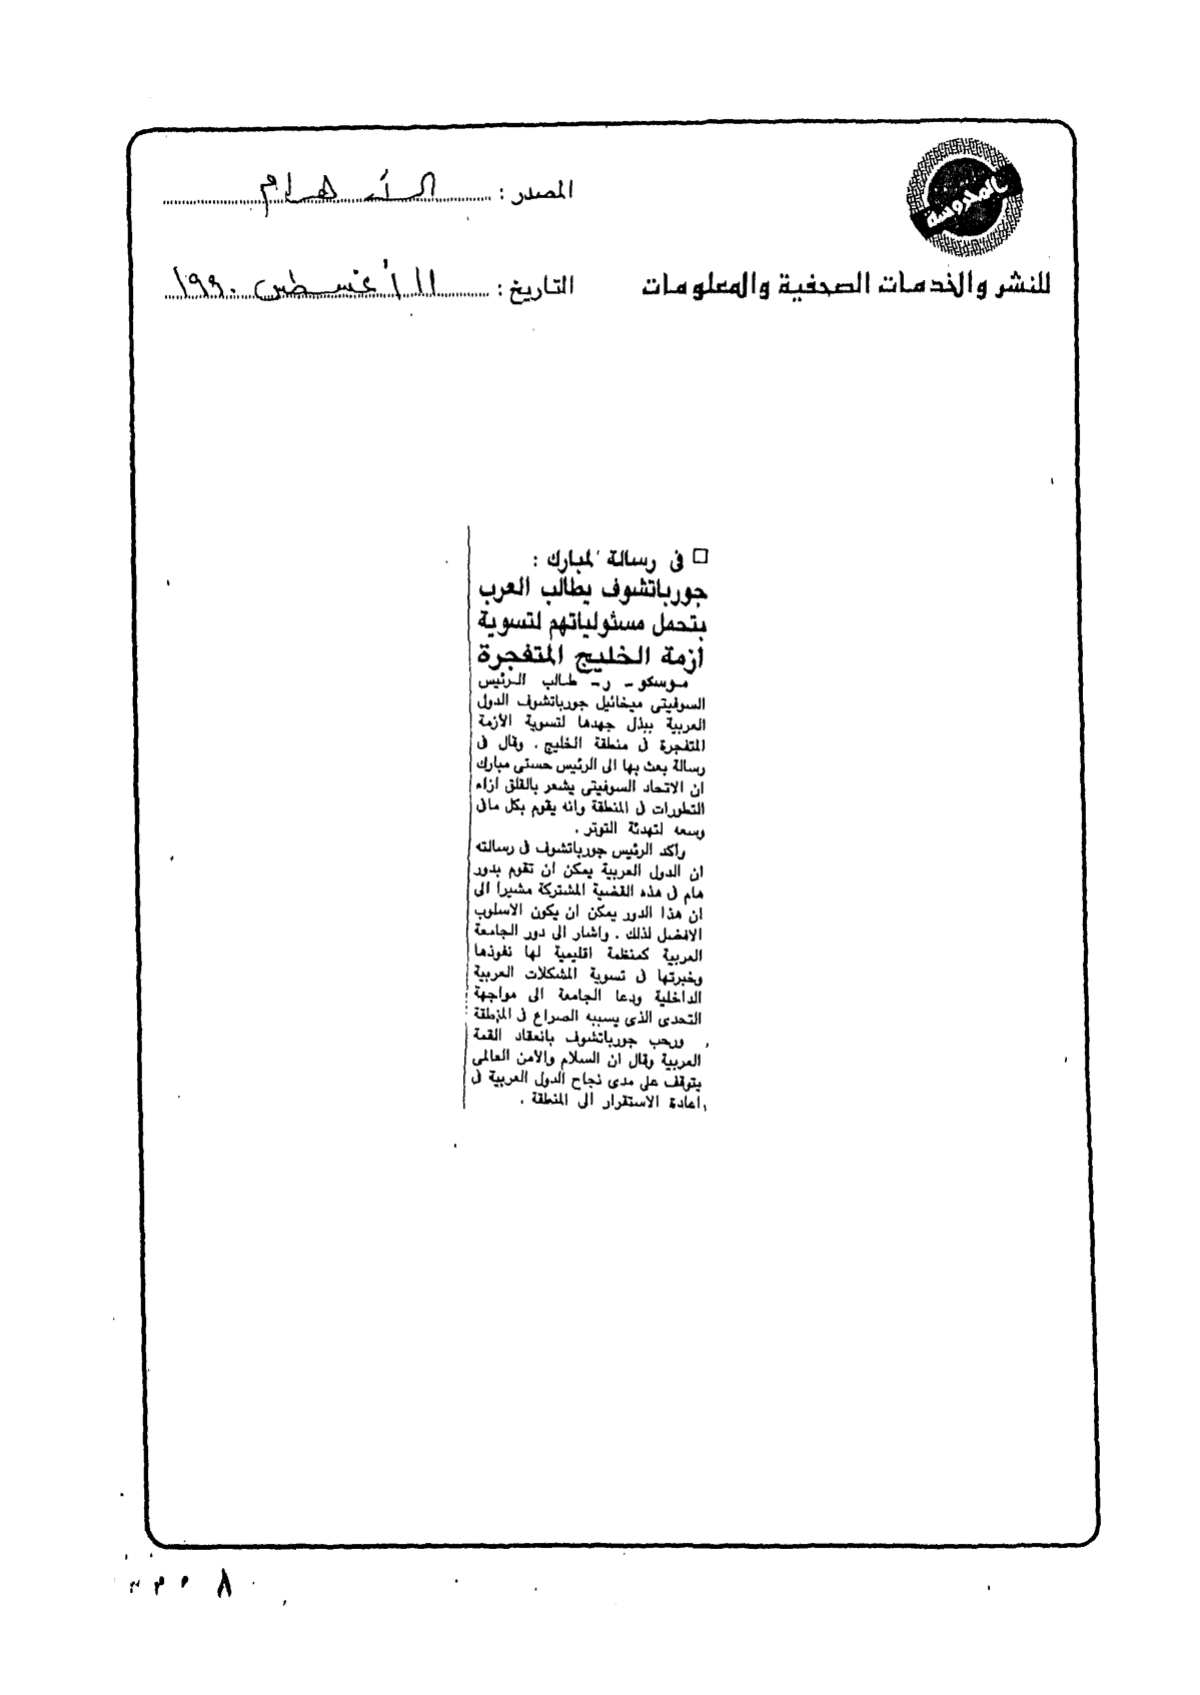 المحروسة
للنشر والخدمات الصحفية والمعلومات
المصدر : الأهرام
التاريخ : ١١ أغسطس ١٩٩٠
□ فى رسالة لمبارك :
جورباتشوف يطالب العرب
بتحمل مسئولياتهم لتسوية
أزمة الخليج المتفجرة
موسكو ـ ر ـ طالب الرئيس
السوفيتى ميخائيل جورباتشوف الدول
العربية ببذل جهدها لتسوية الأزمة
المتفجرة فى منطقة الخليج . وقال فى
رسالة بعث بها الى الرئيس حسنى مبارك
ان الاتحاد السوفيتى يشعر بالقلق ازاء
التطورات فى المنطقة وانه يقوم بكل مافى
وسعه لتهدئة التوتر .
وأكد الرئيس جورباتشوف فى رسالته
ان الدول العربية يمكن ان تقوم بدور
هام فى هذه القضية المشتركة مشيرا الى
ان هذا الدور يمكن ان يكون الاسلوب
الافضل لذلك . واشار الى دور الجامعة
العربية كمنظمة اقليمية لها نفوذها
وخبرتها فى تسوية المشكلات العربية
الداخلية ودعا الجامعة الى مواجهة
التحدى الذى يسببه الصراع فى المنطقة
ورحب جورباتشوف بانعقاد القمة
العربية وقال ان السلام والأمن العالمى
يتوقف على مدى نجاح الدول العربية فى
اعادة الاستقرار الى المنطقة .